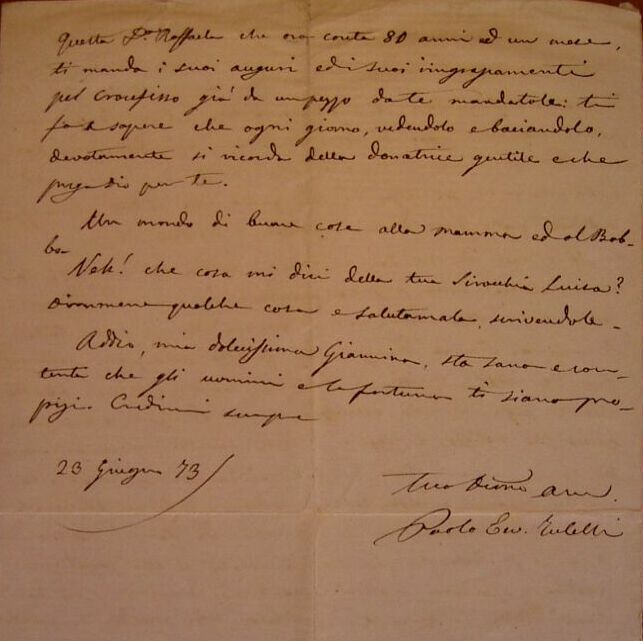 Questa Sra Raffaela che ora conta 80 anni ed un mese,
ti manda i suoi auguri ed i suoi ringraziamenti
pel Crocifisso già da un pezzo da te mandatole: ti
fa sapere che ogni giorno, vedendolo e baciandolo,
devotamente si ricorda della donatrice gentile e che
prega dio per te.
Un mondo di buone cose alla mamma ed al Bab-
bo.
Neh! che cosa mi dici della tua Sirocchia Luisa?
Dimmene qualche cosa e salutamela, scrivendole.
Addio, mia dolcissima Giannina, sta sana e con-
tenta che gli uomini e la fortuna ti siano pro-
pizi. Credimi sempre
23 Giugno 73
Tuo
Paolo